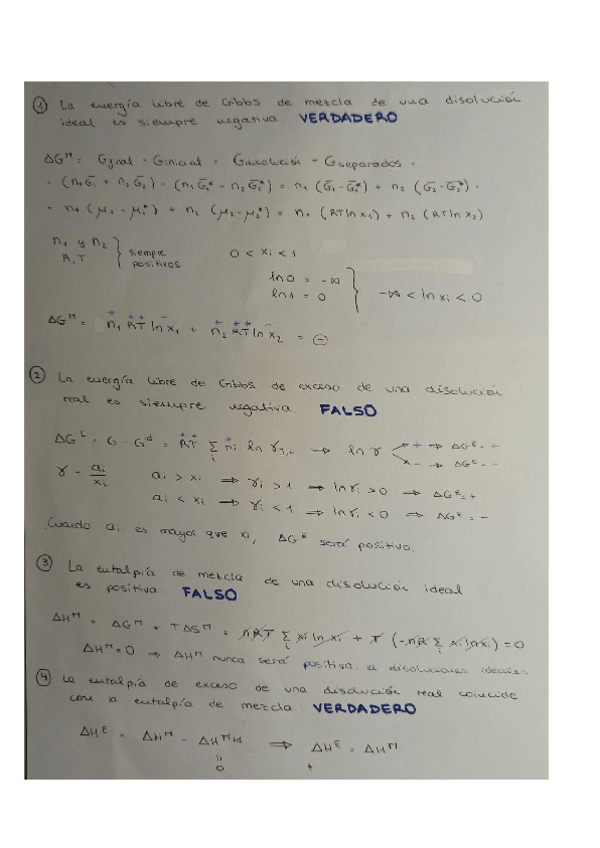 ① La energía libre de Gibbs de mezcla de una disolución
ideal es siempre negativa VERDADERO
ΔGᴹ = Gfinal - Ginicial = Gdisolución - Gseparados =
= (n₁G̅₁ + n₂G̅₂) - (n₁G̅₁* - n₂G̅₂*) = n₁ (G̅₁ - G̅₁*) + n₂ (G̅₂ - G̅₂*) =
= n₁ (μ₁ - μ₁*) + n₂ (μ₂ - μ₂*) = n₁ (RT ln x₁) + n₂ (RT ln x₂)
n₁ y n₂
R, T } siempre positivos 0 < xi < 1
ln 0 = -∞
ln 1 = 0 } -∞ < ln xi < 0
ΔGᴹ = n₁ RT ln x₁ + n₂ RT ln x₂ = ⊖
② La energía libre de Gibbs de exceso de una disolución
real es siempre negativa. FALSO
ΔGᴱ = G - Gⁱᵈ = RT Σ ni ln γ → ln γ + → ΔGᴱ = +
- → ΔGᴱ = -
γ = ai/xi ai > xi ⇒ γi > 1 ⇒ ln γi > 0 ⇒ ΔGᴱ = +
ai < xi ⇒ γi < 1 ⇒ ln γi < 0 ⇒ ΔGᴱ = -
Cuando ai es mayor que xi, ΔGᴱ será positivo.
③ La entalpía de mezcla de una disolución ideal
es positiva. FALSO
ΔHᴹ = ΔGᴹ + TΔSᴹ = nRT Σ xi ln xi + T (-nR Σ xi ln xi) = 0
ΔHᴹ = 0 ⇒ ΔHᴹ nunca será positiva disoluciones ideales
④ La entalpía de exceso de una disolución real coincide
con la entalpía de mezcla. VERDADERO
ΔHᴱ = ΔHᴹ - ΔHᴹⁱᵈ ⇒ ΔHᴱ = ΔHᴹ
"
0